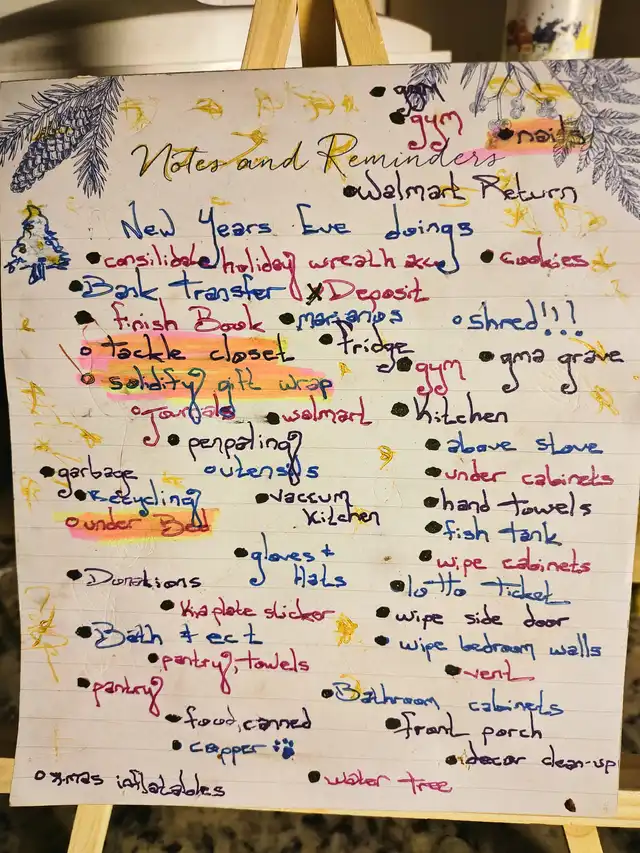 gym
gym
nails
Notes and Reminders
Walmart Return
New Years Eve doings
consilidate holiday wreath acc cookies
Bank Transfer x Deposit
finish Book marianos shred!!!
tackle closet fridge gma grave
solidify gift wrap gym
Journals walmart Kitchen
penpaling above stove
garbage utensils under cabinets
Recycling vaccum hand towels
under Bed Kitchen fish tank
gloves + wipe cabinets
Donations Hats lotto ticket
Kia plate sticker wipe side door
Bath + ect wipe bedroom walls
pantry, towels vent
pantry Bathroom cabinets
food, canned front porch
copper decor clean-up
x-mas inflatables water tree